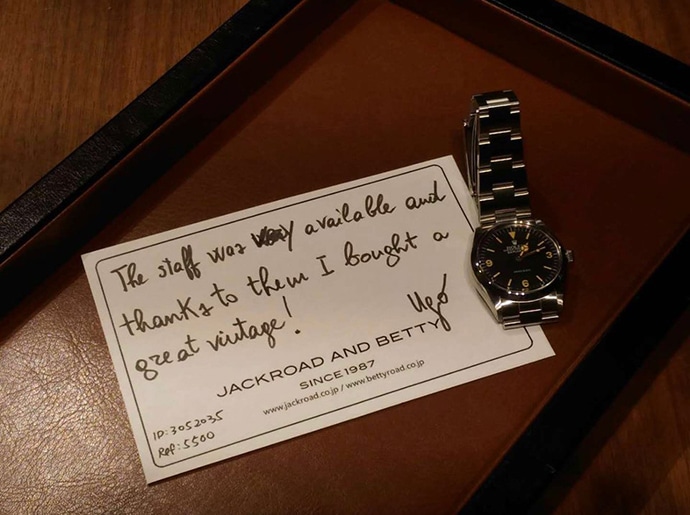 The staff was very available and
thanks to them I bought a
great vintage!
Ugo
JACKROAD AND BETTY
SINCE 1987
www.jackroad.co.jp / www.bettyroad.co.jp
ID:3052035
Ref:5500
ROLEX
3
6
9